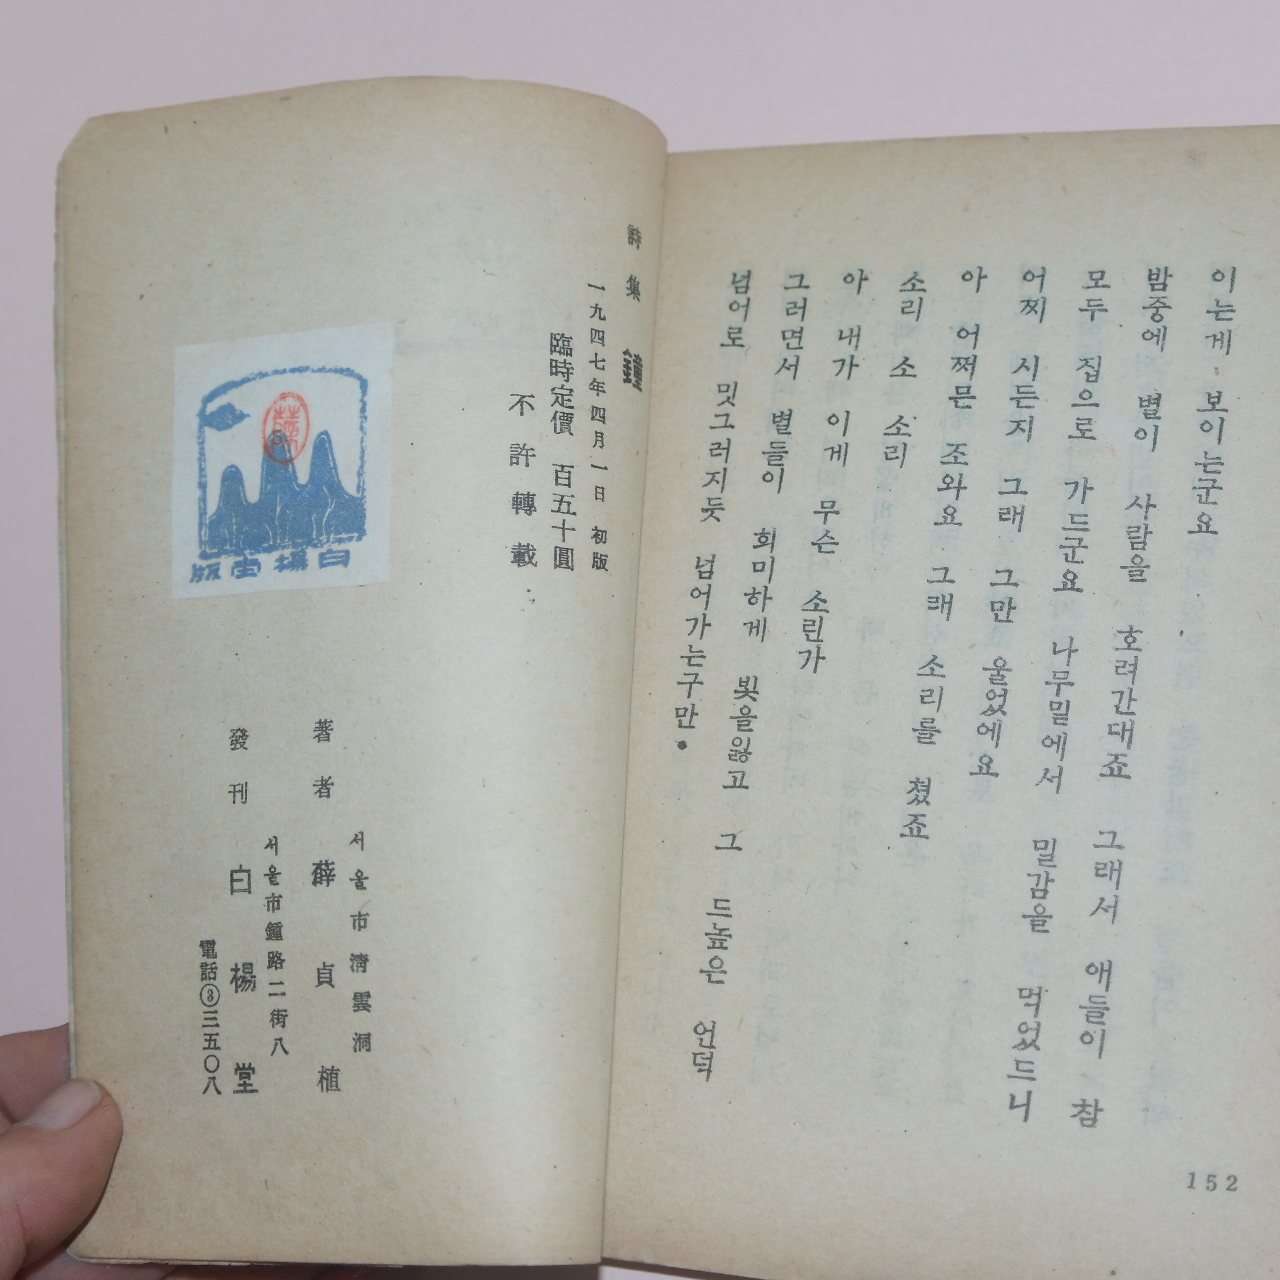 이는게 보이는군요
밤중에 별이 사람을 호려간대죠 그래서 애들이 참
모두 집으로 가드군요 나무밑에서 밀감을 먹었드니
어찌 시든지 그래 그만 울었에요
아 어쩌믄 조와요 그래 소리를 쳤죠
소리 소 소리
아 내가 이게 무슨 소린가
그러면서 별들이 희미하게 빛을잃고 그 드높은 언덕
넘어로 밋그러지듯 넘어가는구만.
152
詩集 鐘
一九四七年四月一日 初版
臨時定價 百五十圓
不許轉載
白楊堂版
서울市淸雲洞
著者 薛貞植
서울市鐘路二街八
發刊 白楊堂
電話③三五〇八